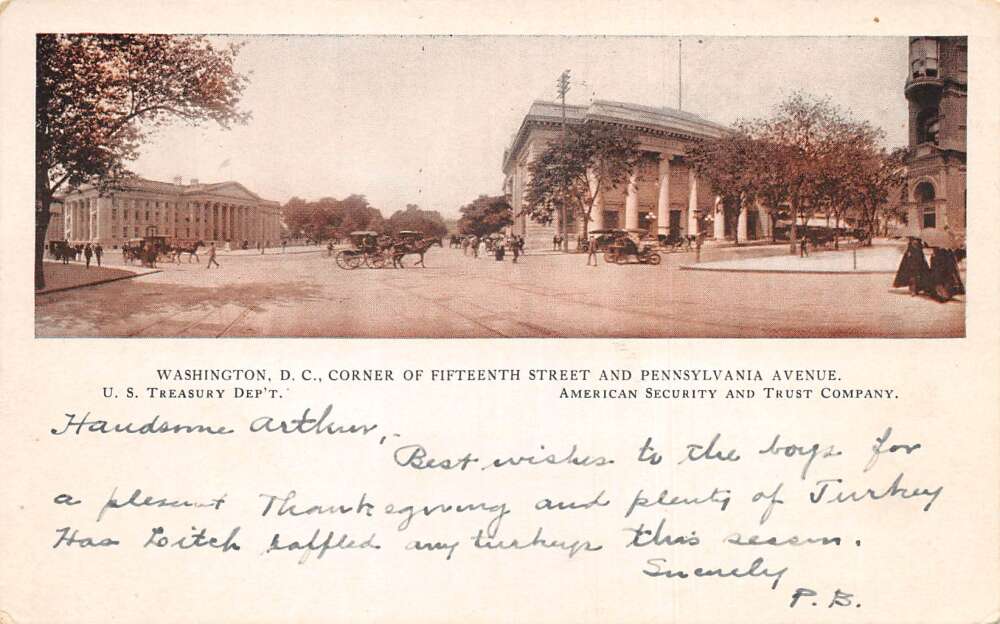 WASHINGTON, D. C., CORNER OF FIFTEENTH STREET AND PENNSYLVANIA AVENUE.
U. S. TREASURY DEP'T. AMERICAN SECURITY AND TRUST COMPANY.
Handsome Arthur,
Best wishes to the boys for
a plesent Thanksgiving and plenty of Turkey
Has raffled any turkeys this season.
Sincerely
P. B.